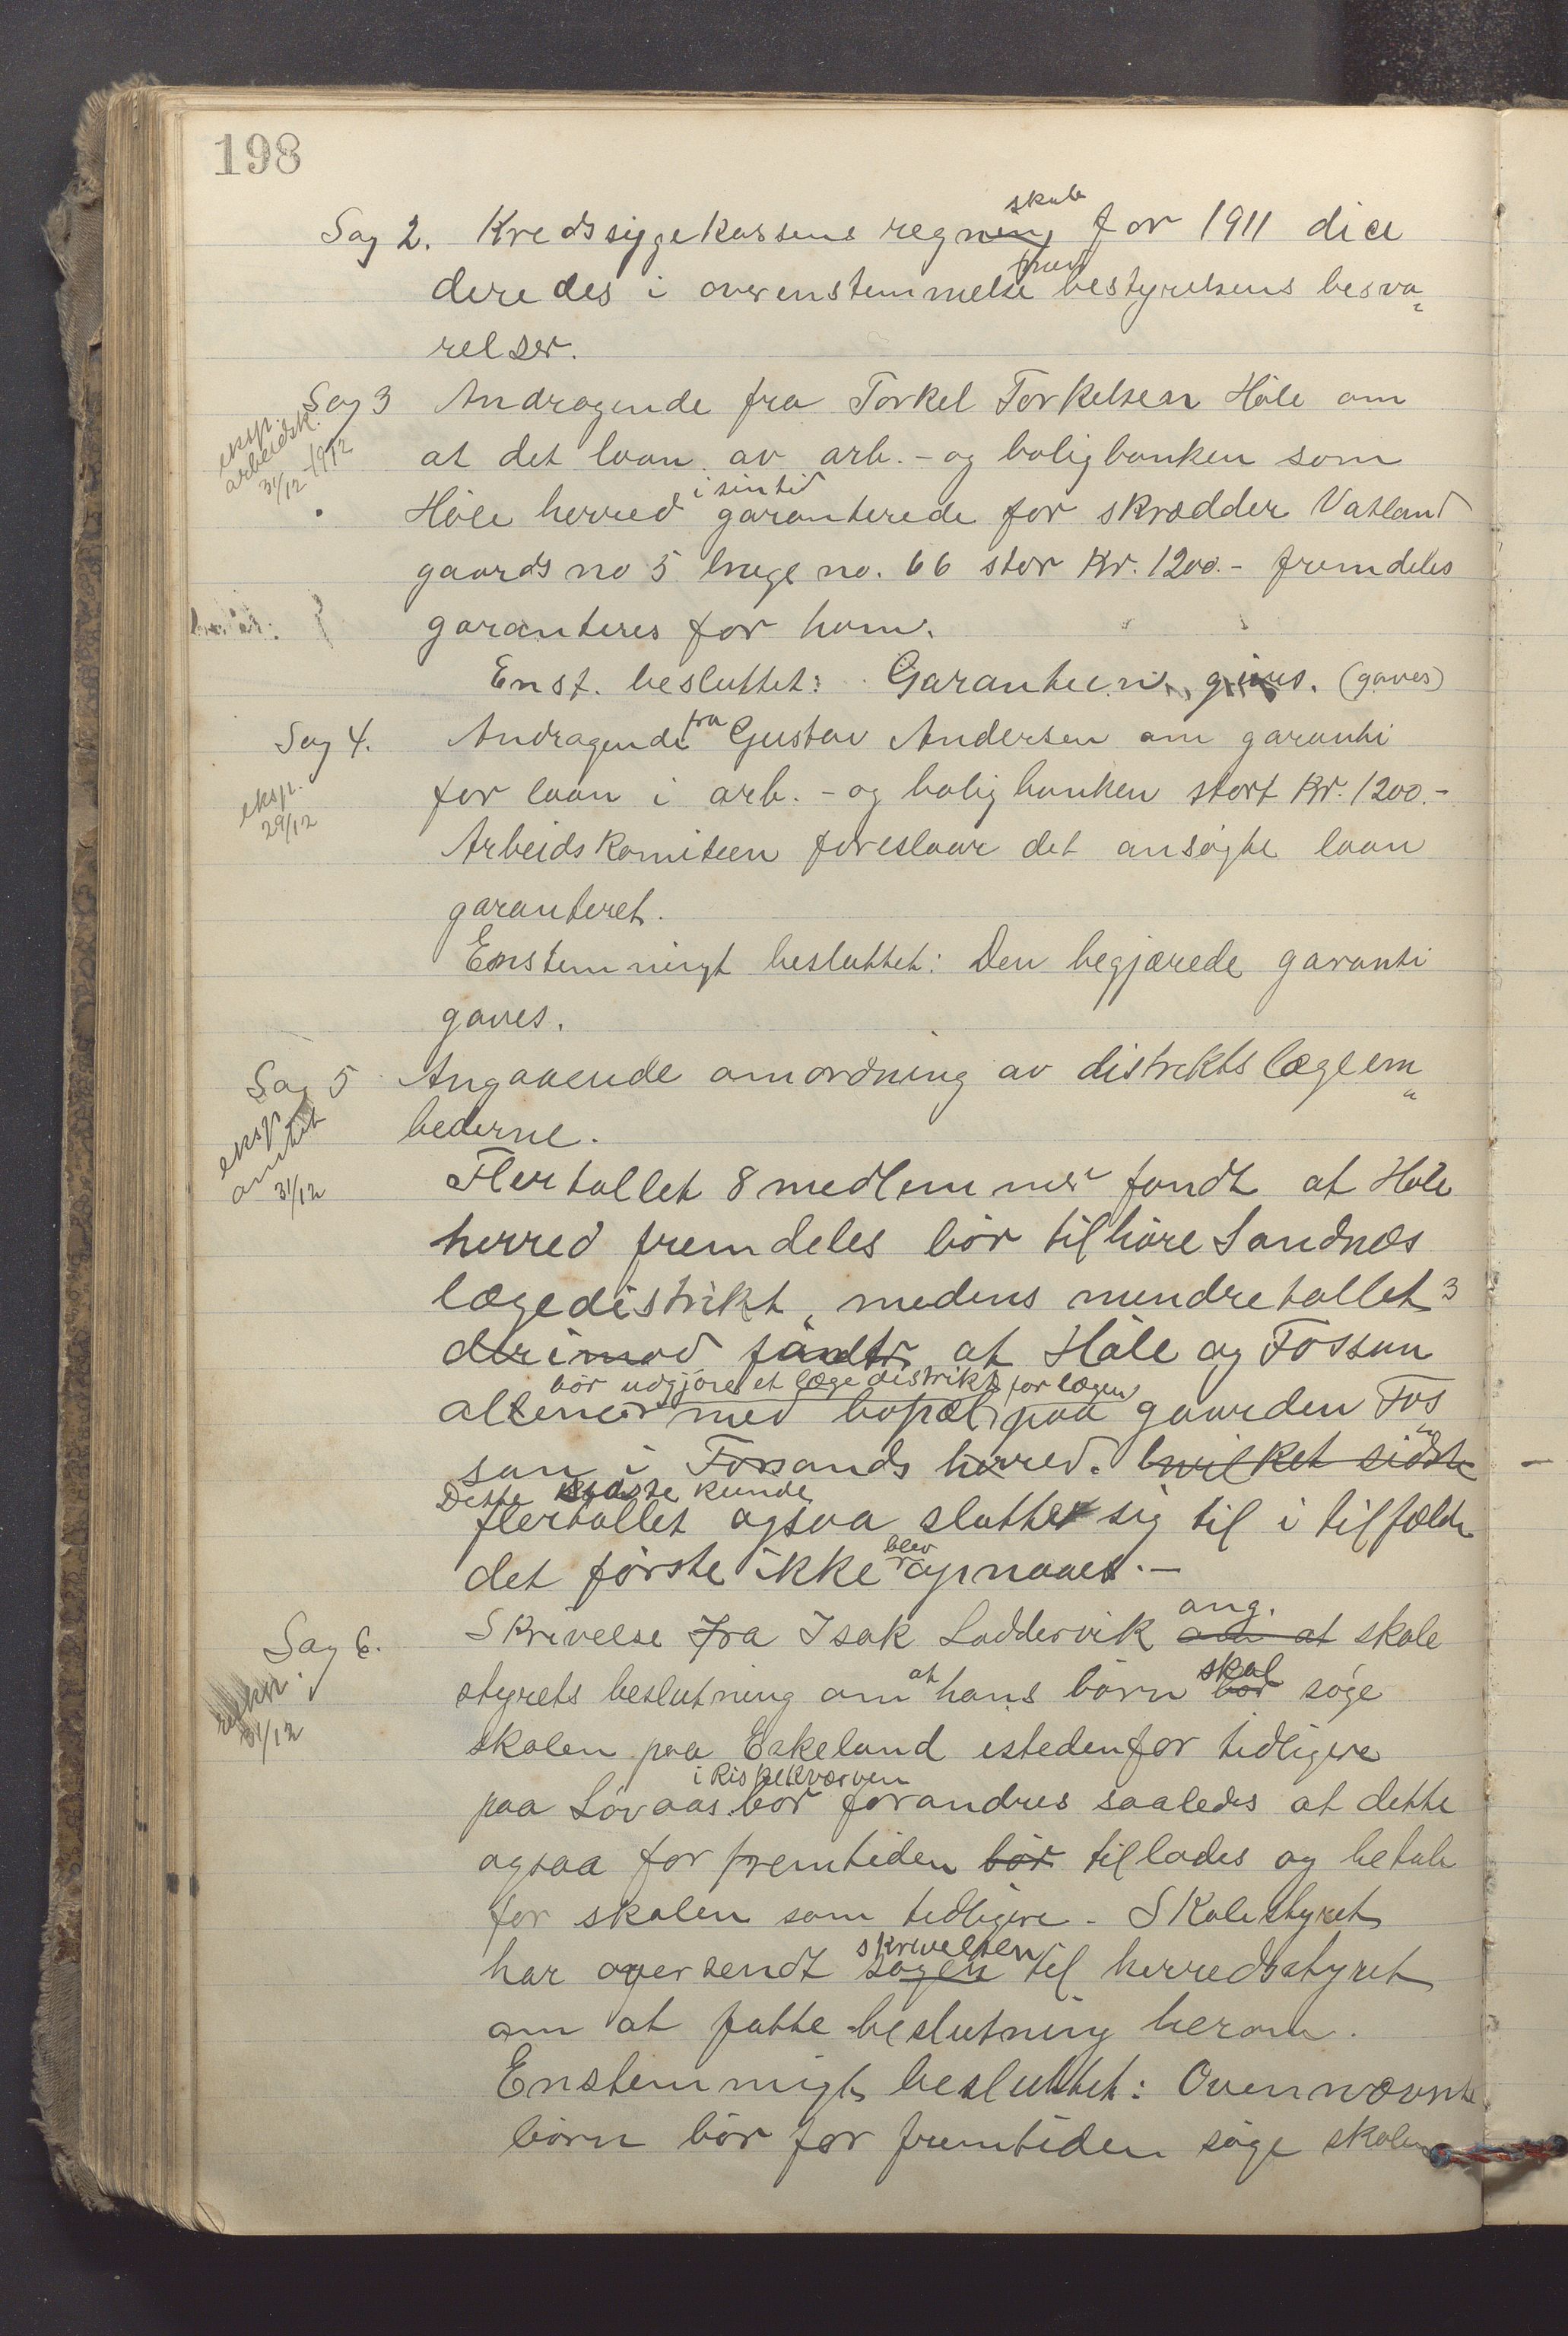 198
Sag 2. Kredssygekassens regnskab for 1911 dici
deredes i overenstemmelse med bestyrelsens besva
relser.
Sag 3 Andragende fra Torkel Torkelsen Høle om
eksp. arbeidsk. 31/12-1912
at det laan av arb.- og boligbanken som
Høle herred i sin tid garanterede for skrædder Vatland
gaards no 5 brugs no. 66 stor Kr. 1200.- fremdeles
garanteres for ham.
Enst. besluttet: Garantien gives. (gaves)
Sag 4. Andragende fra Gustav Andersen om garanti
eksp. 29/12
for laan i arb.- og boligbanken stort Kr. 1200.-
Arbeidskomiteen foreslaar det ansøgte laan
garanteret.
Enstemmigt besluttet: Den begjærede garanti
gaves.
Sag 5 Angaaende omordning av distriktslægeem
eksp. amtet 31/12
bederne.
Flertallet 8 medlemmer fandt at Høle
herred fremdeles bør tilhøre Sandnæs
lægedistrikt, medens mindretallet 3
derimod fandt at Høle og Fossan
bør udgjøre et lægedistrikt for lægen
altener med bopæl paa gaarden Fos
san i Forsands herred. hvilket sidste
Dette sidste kunde
flertallet ogsaa slutte sig til i tilfælde
det første ikke blev opnaaet.-
Sag 6. Skrivelse fra Isak Loddervik ang. om at skole
eksp. 31/12
styrets beslutning om at hans børn skal bør søge
skolen paa Eskeland istedenfor tidligere
i Riskekværven
paa Løvaas bør forandres saaledes at dette
ogsaa for fremtiden bør tillades og betale
for skolen som tidligere. Skolestyret
har oversendt skrivelsen sagen til herredsstyret
om at fatte beslutning herom.
Enstemmigt besluttet: Ovennævnte
børn bør for fremtiden søge skolen